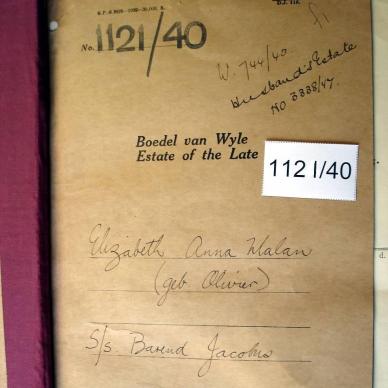 G.P.-S.
D.J. 11k.
No. 1121/40
W. 744/40.
Husband's Estate
No 3338/47.
Boedel van Wyle
Estate of the Late
1121/40
Elizabeth Anna Malan
(geb Olivier)
S/s. Barend Jacobus
d.